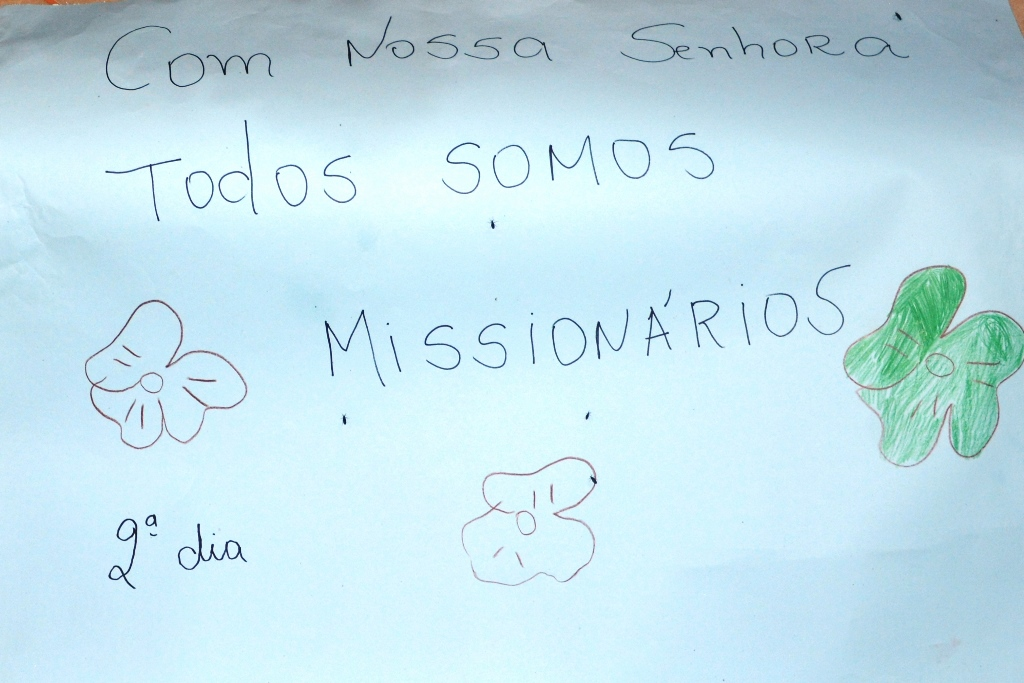 Com Nossa Senhora
Todos somos
Missionários
2ª dia